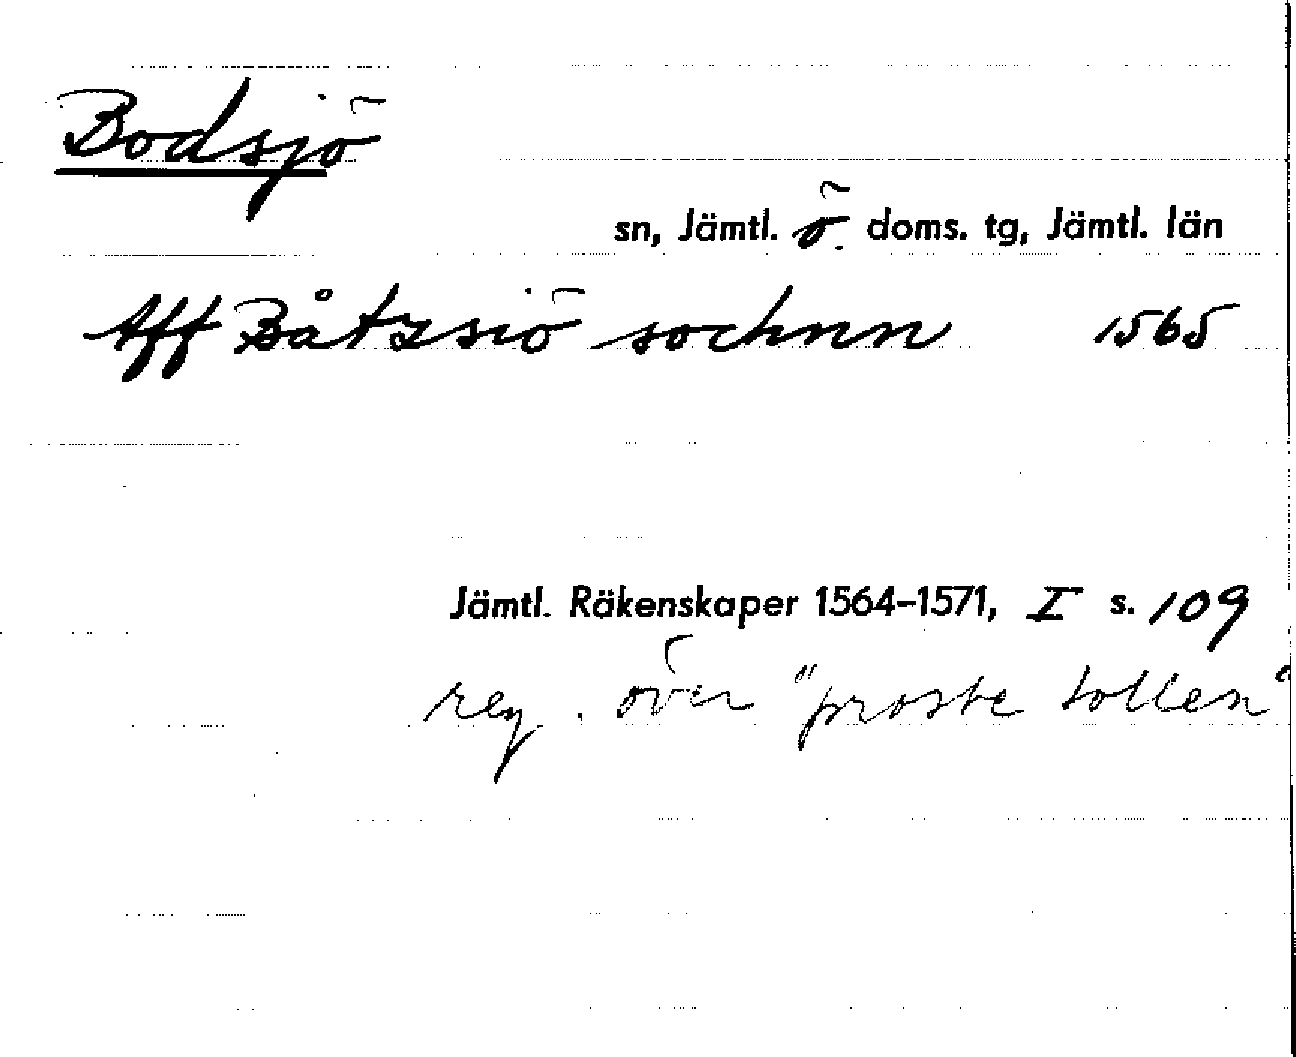 Bodsjö
sn, Jämtl. ö. doms. tg, Jämtl. län
Aff Båtzsiö sochnn 1565
Jämtl. Räkenskaper 1564-1571, I s. 109
reg. över "proste tollen"